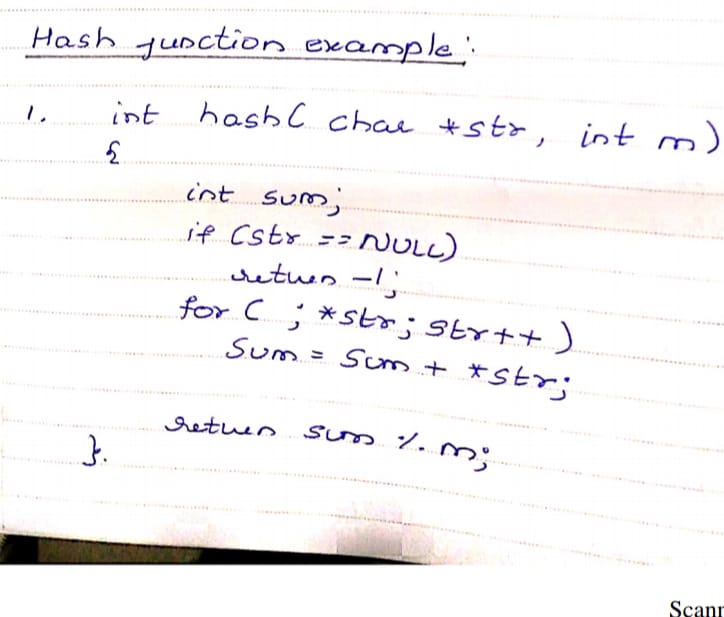 Hash function example:
1. int hash( char *str, int m)
{
int sum;
if (str == NULL)
return -1;
for ( ; *str; str++ )
Sum = Sum + *str;
return sum % m;
}.
Scanr